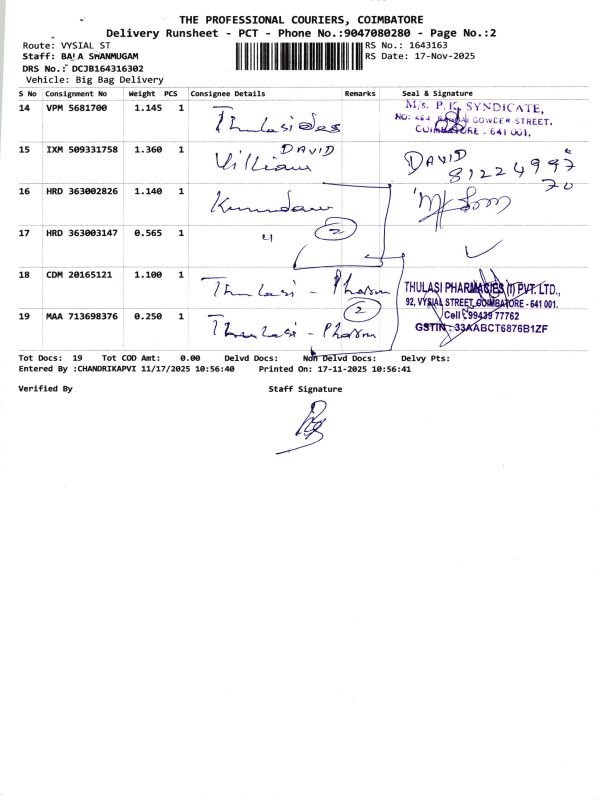 THE PROFESSIONAL COURIERS, COIMBATORE
Delivery Runsheet - PCT - Phone No.:9047080280 - Page No.:2
Route: VYSIAL ST
RS No.: 1643163
Staff: BALA SHANMUGAM
RS Date: 17-Nov-2025
DRS No.: DCJB164316302
Vehicle: Big Bag Delivery
S No Consignment No Weight PCS Consignee Details Remarks Seal & Signature
14 VPM 5681700 1.145 1 Thulasidas
M/s. P. K. SYNDICATE,
GOWDER STREET,
COIMBATORE - 641 001.
15 IXM 509331758 1.360 1 DAVID William DAVID
8122499
70
16 HRD 363002826 1.140 1
17 HRD 363003147 0.565 1 " 2
18 CDM 20165121 1.100 1 Thulasi - Pharm
THULASI PHARMACIES (I) PVT. LTD.,
92, VYSIAL STREET, COIMBATORE - 641 001.
Cell : 99439 77762
GSTIN : 33AABCT6876B1ZF
2
19 MAA 713698376 0.250 1 Thulasi - Pharm
Tot Docs: 19 Tot COD Amt: 0.00 Delvd Docs: Non Delvd Docs: Delvy Pts:
Entered By :CHANDRIKAPVI 11/17/2025 10:56:40 Printed On: 17-11-2025 10:56:41
Verified By Staff Signature